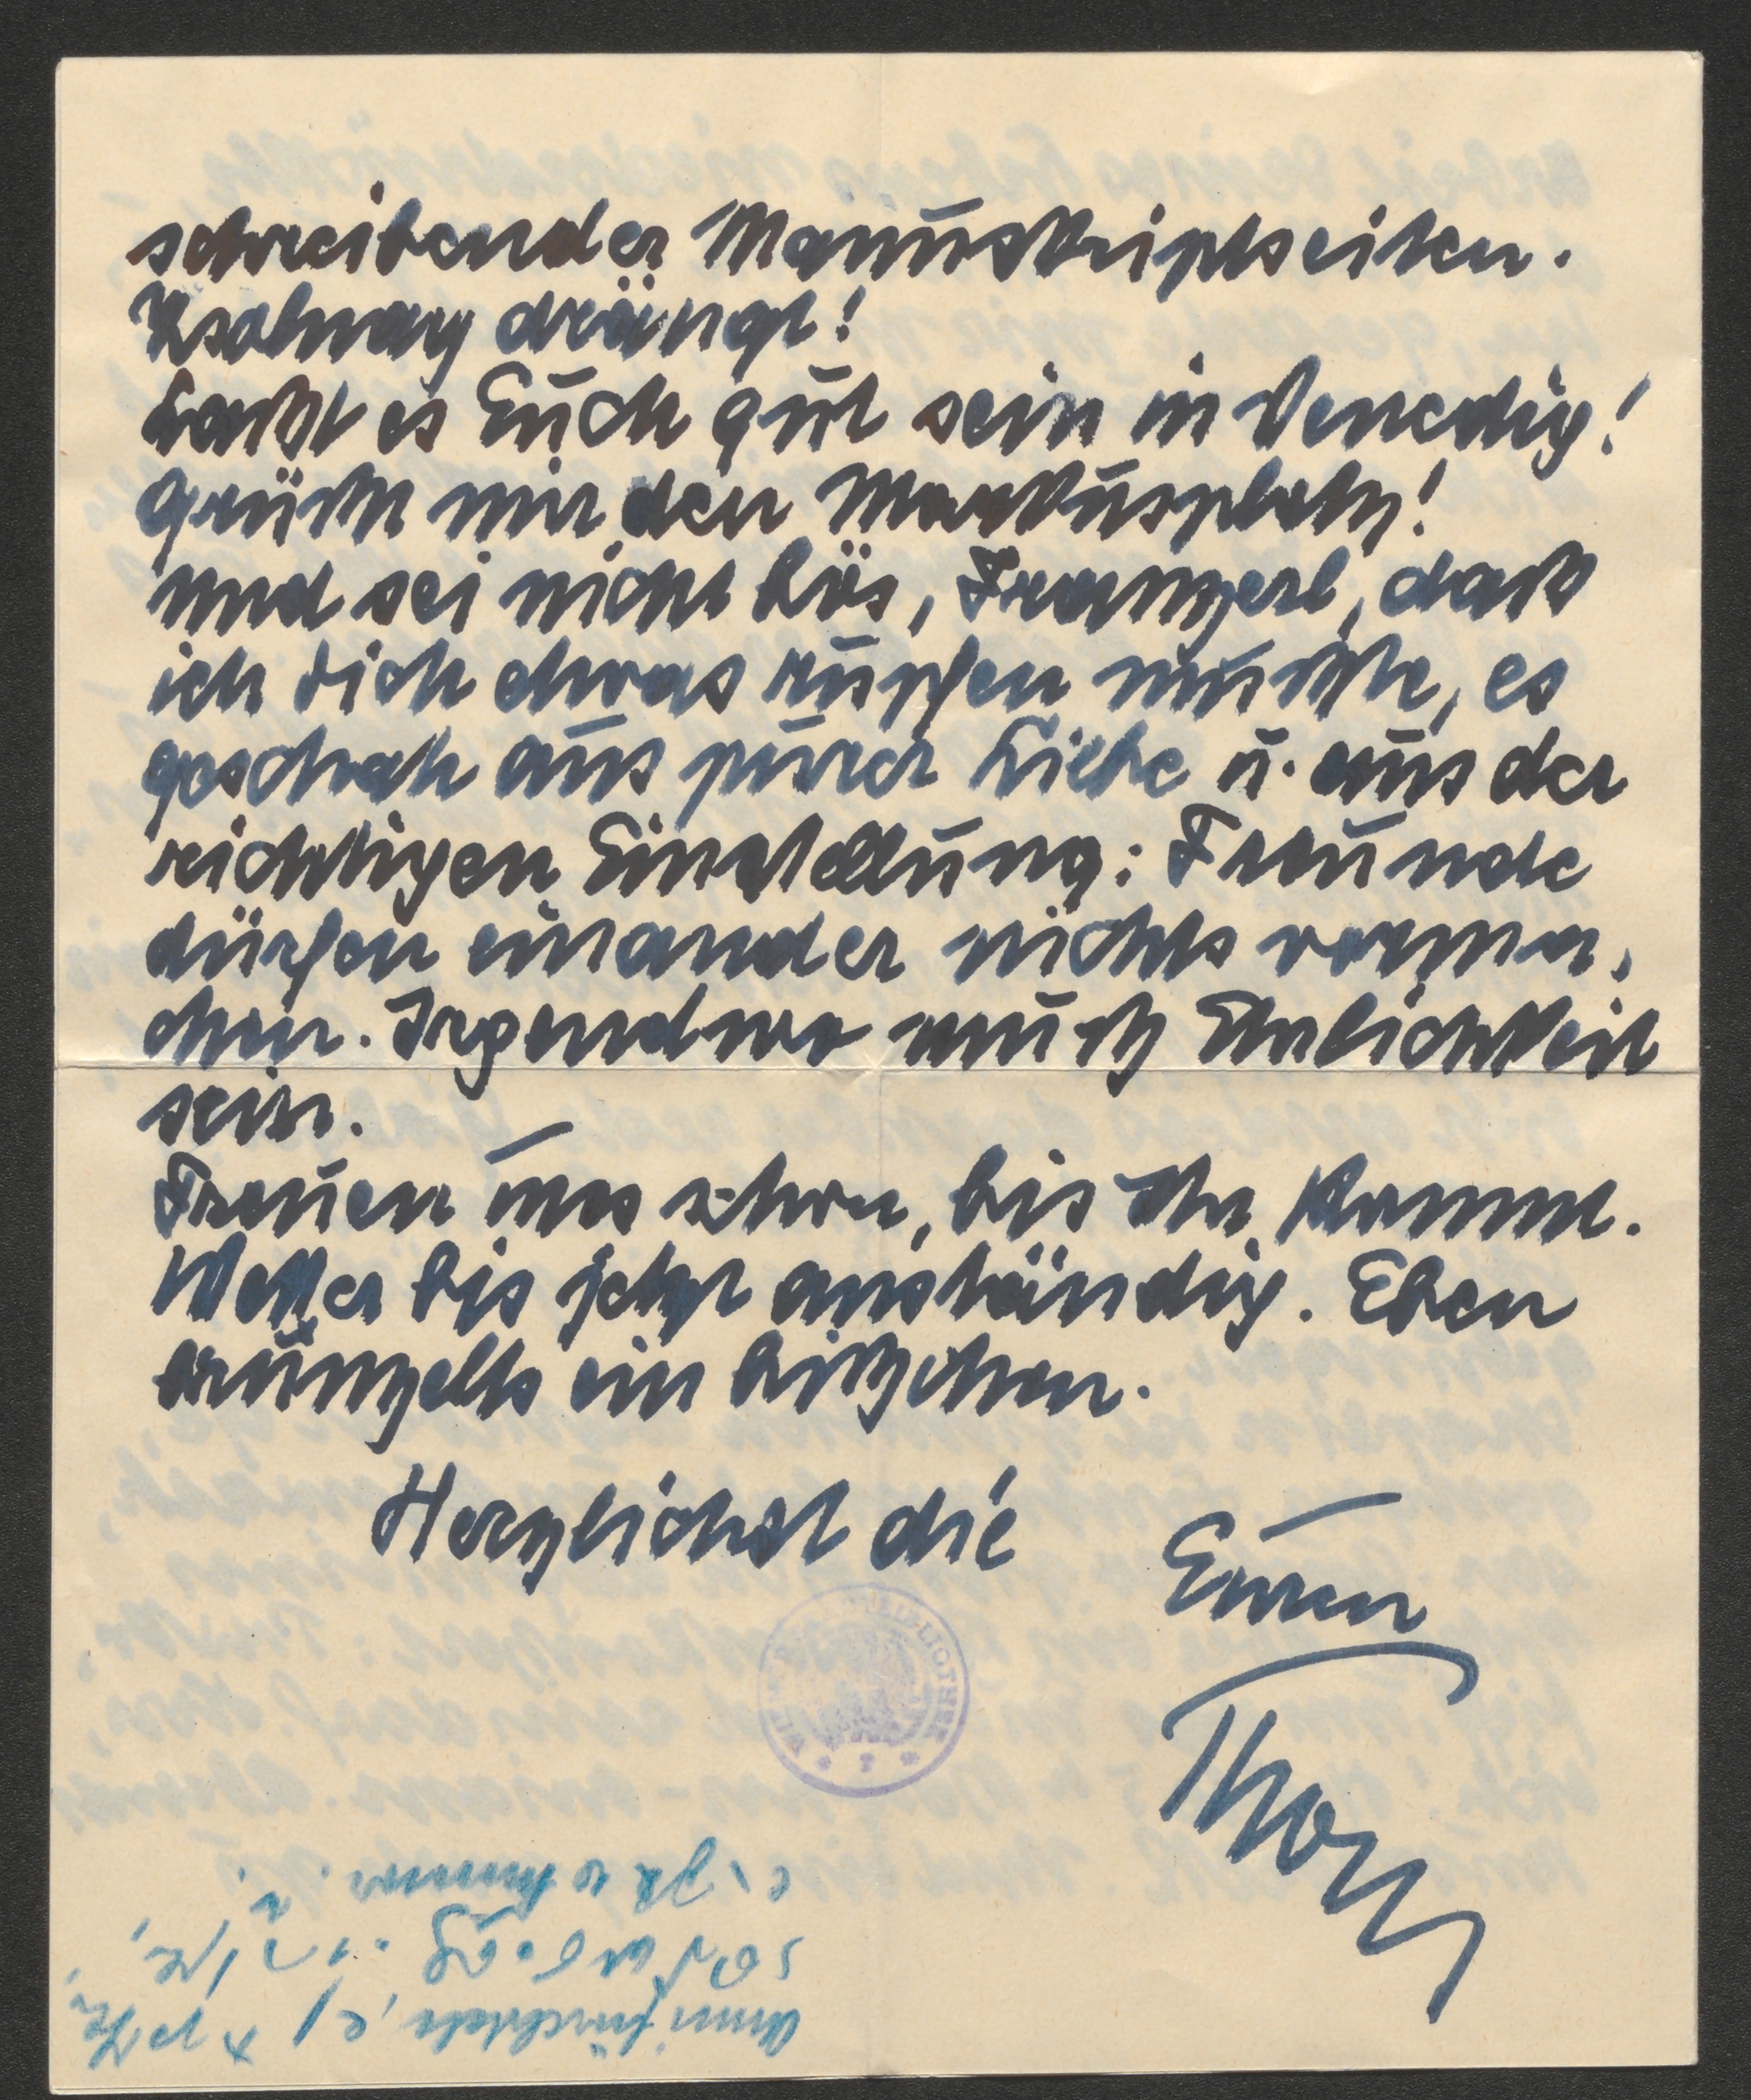 schreibender Manuskriptseiten.
Zsolnay drängt!
Laßt es Euch gut sein in Venedig!
Grüßt mir den Markusplatz!
Und sei nicht bös, Franzerl, daß
ich Dich etwas rupfen mußte, es
geschah aus purer Liebe u. aus der
richtigen Einstellung: Freunde
dürfen einander nichts vorma-
chen. Irgendwo muß Ehrlichkeit
sein.
Freuen uns schon, bis Ihr kommt.
Wetter bis jetzt anständig. Eben
brunzelts ein bißchen.
Herzlichst die
Euren
Thory